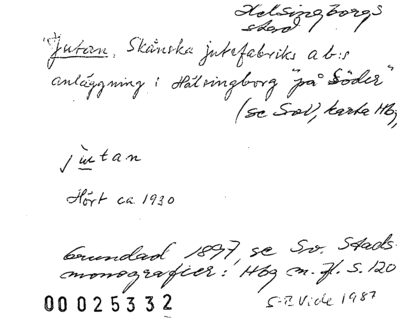 Helsingborgs
stad
"Jutan, Skånska jutefabriks a.b:s
anläggning i Hälsingborg "på Söder"
(se SoU, karta Hbg,
jutan
Hört ca 1930
Grundad 1897, se Sv. Stads-
monografier: Hbg m. fl. S. 120
00025332
S-B Vide 1987